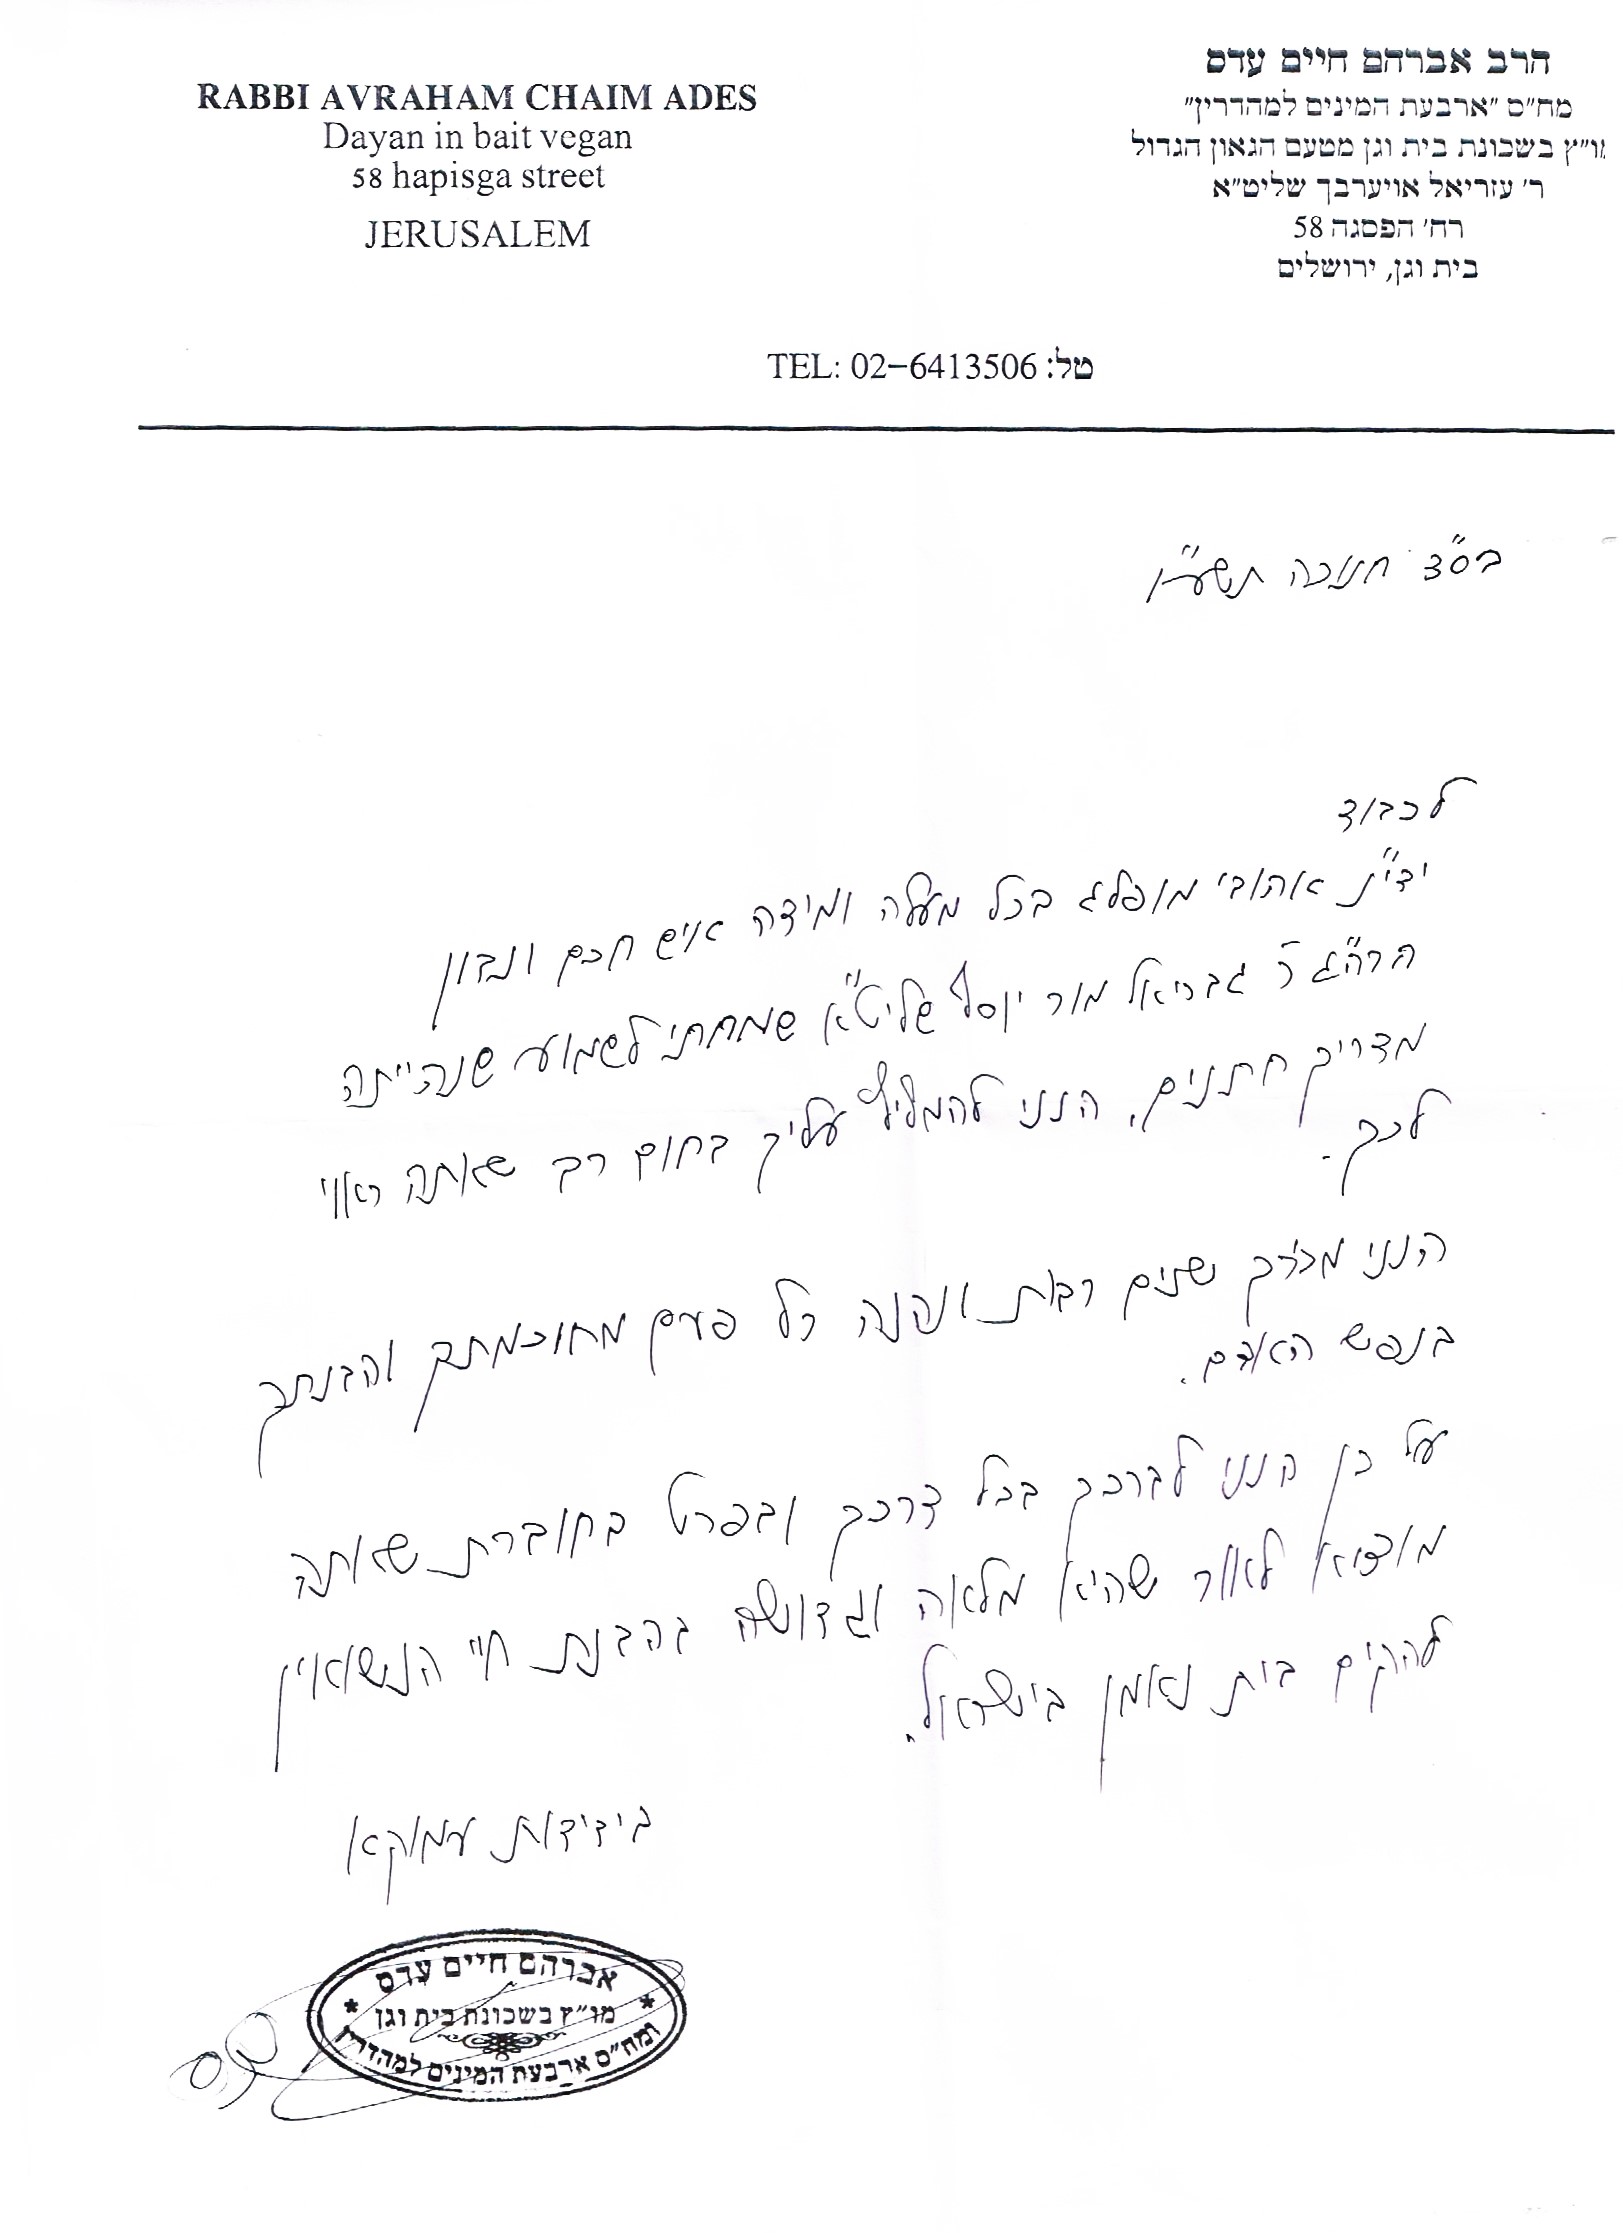 RABBI AVRAHAM CHAIM ADES
Dayan in bait vegan
58 hapisga street
JERUSALEM
הרב אברהם חיים עדס
מח״ס ״ארבעת המינים למהדרין״
מו״ץ בשכונת בית וגן מטעם הגאון הגדול
ר׳ עזריאל אויערבך שליט״א
רח׳ הפסגה 58
בית וגן, ירושלים
TEL: 02-6413506 :טל
בס״ד חנוכה תשע״ו
לכבוד
ידי״נ אהובי מופלג בכל מעלה ומידה איש חכם ונבון
הרה״ג ר׳ גבריאל מור יוסף שליט״א שמחתי לשמוע שנהייתה
מדריך חתנים, הנני להמליץ עליך בחום רב שאתה ראוי
לכך.
הנני מכירך שנים רבות ונהנה כל פעם מחוכמתך והבנתך
בנפש האדם.
על כן הנני לברכך בכל דרכך ובפרט בחוברת שאתה
מוציא לאור שהיא מלאה וגדושה בהבנת חיי הנשואין
להקים בית נאמן בישראל.
בידידות עמוקה
אברהם חיים עדס
מו״ץ בשכונת בית וגן
ומח״ס ארבעת המינים למהדרין